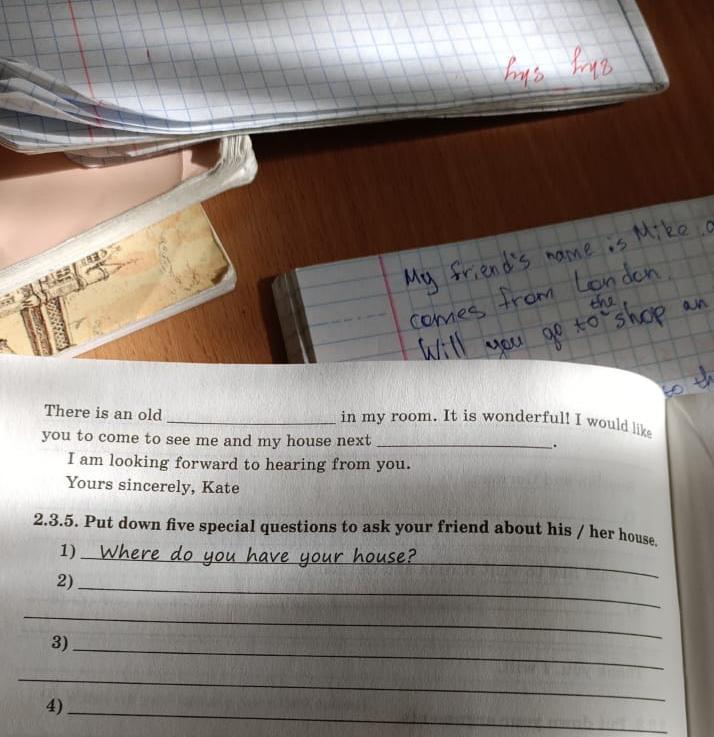 My friend's name is Mike
comes from London.
the
Will you go to shop an
to th
There is an old ____________ in my room. It is wonderful! I would like
you to come to see me and my house next ____________.
I am looking forward to hearing from you.
Yours sincerely, Kate
2.3.5. Put down five special questions to ask your friend about his / her house.
1) Where do you have your house?
2)
3)
4)